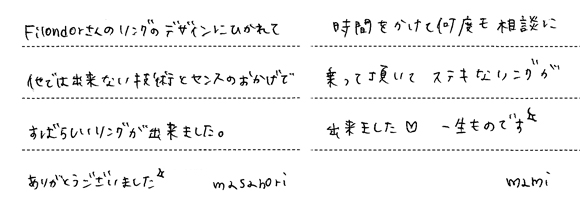 Filondorさんのリングのデザインにひかれて
他では出来ない技術とセンスのおかげで
すばらしいリングが出来ました。
ありがとうございました☆
masanori
時間をかけて何度も相談に
乗って頂いて ステキなリングが
出来ました♡ 一生ものです☆
mami